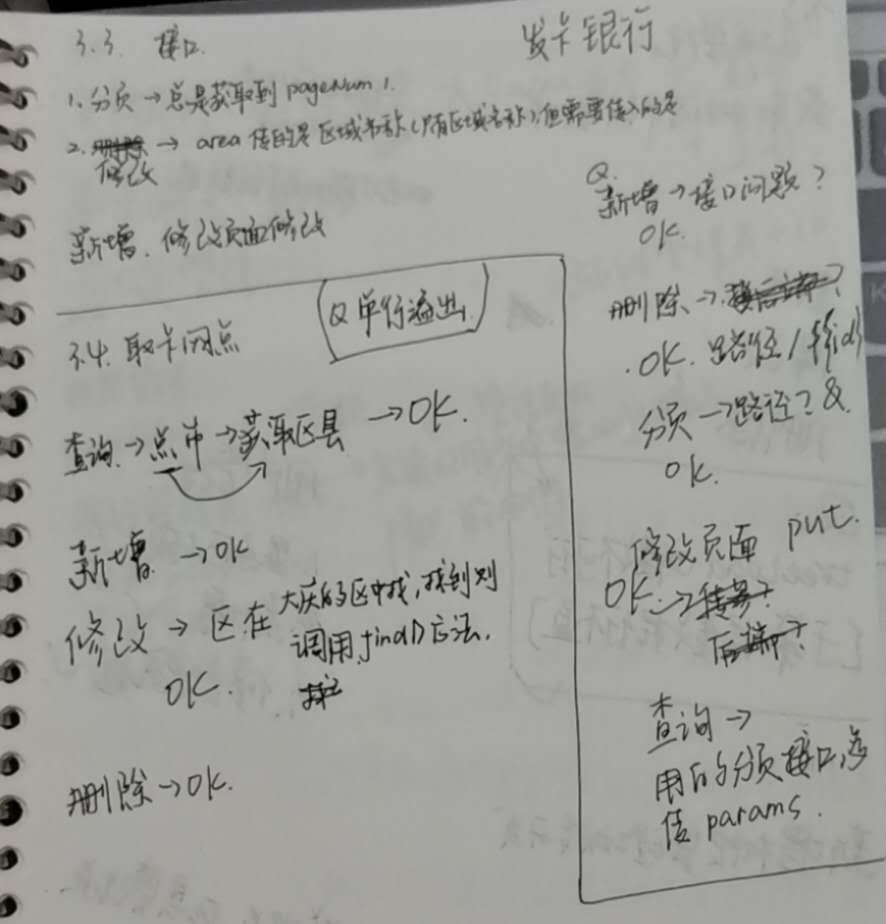 3.3. 接口.
1. 分页 → 总是获取到 pageNum 1.
2. 删除 → area 传的是区域名称(只有区域名称),但需要传入的是
修改
新增. 修改页面修改
Q 单行溢出
3.4. 取卡网点
查询. → 点市 → 获取区县 → OK.
新增. → OK
修改 → 区在大庆的区中找,找到则
调用 find() 方法.
OK.
删除 → OK.
发卡银行
Q.
新增 → 接口问题?
OK.
删除 →
. OK. 路径 /
分页 → 路径? &.
OK.
修改页面 put.
OK. → 传参?
后端?
查询 →
用的分页接口,
传 params.